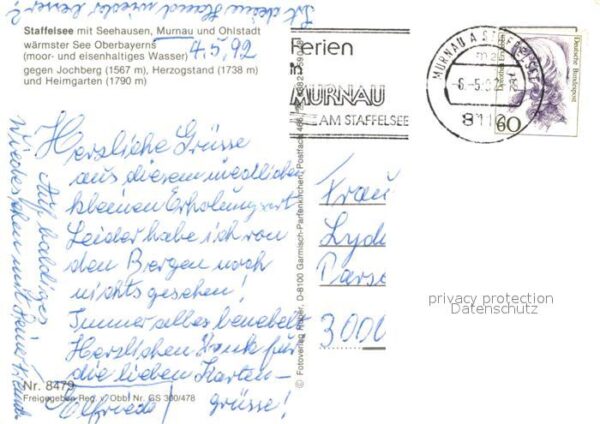 Ist deine Hand wieder besser?
Staffelsee mit Seehausen, Murnau und Ohlstadt
wärmster See Oberbayerns
(moor- und eisenhaltiges Wasser)
gegen Jochberg (1567 m), Herzogstand (1738 m)
und Heimgarten (1790 m)
4.5.92
Ferien
in
MURNAU
AM STAFFELSEE
MURNAU A STAFFELSEE
-6.-5.92
8110
60
Deutsche Bundespost
Herzliche Grüsse
aus diesem niedlichen
kleinen Erholungsort
Leider habe ich von
den Bergen noch
nichts gesehen!
Immer alles benebelt
Herzlichen Dank für
die lieben Karten-
grüsse!
Elfriede
Auf baldiges
Wiedersehen mit Deiner
Frau
Lyd
Pars
3000
© Fotoverlag Huber, D-8100 Garmisch-Partenkirchen, Postfach
Nr. 8479
Freigegeben Reg. v. Obb. Nr. GS 300/478
privacy protection
Datenschutz